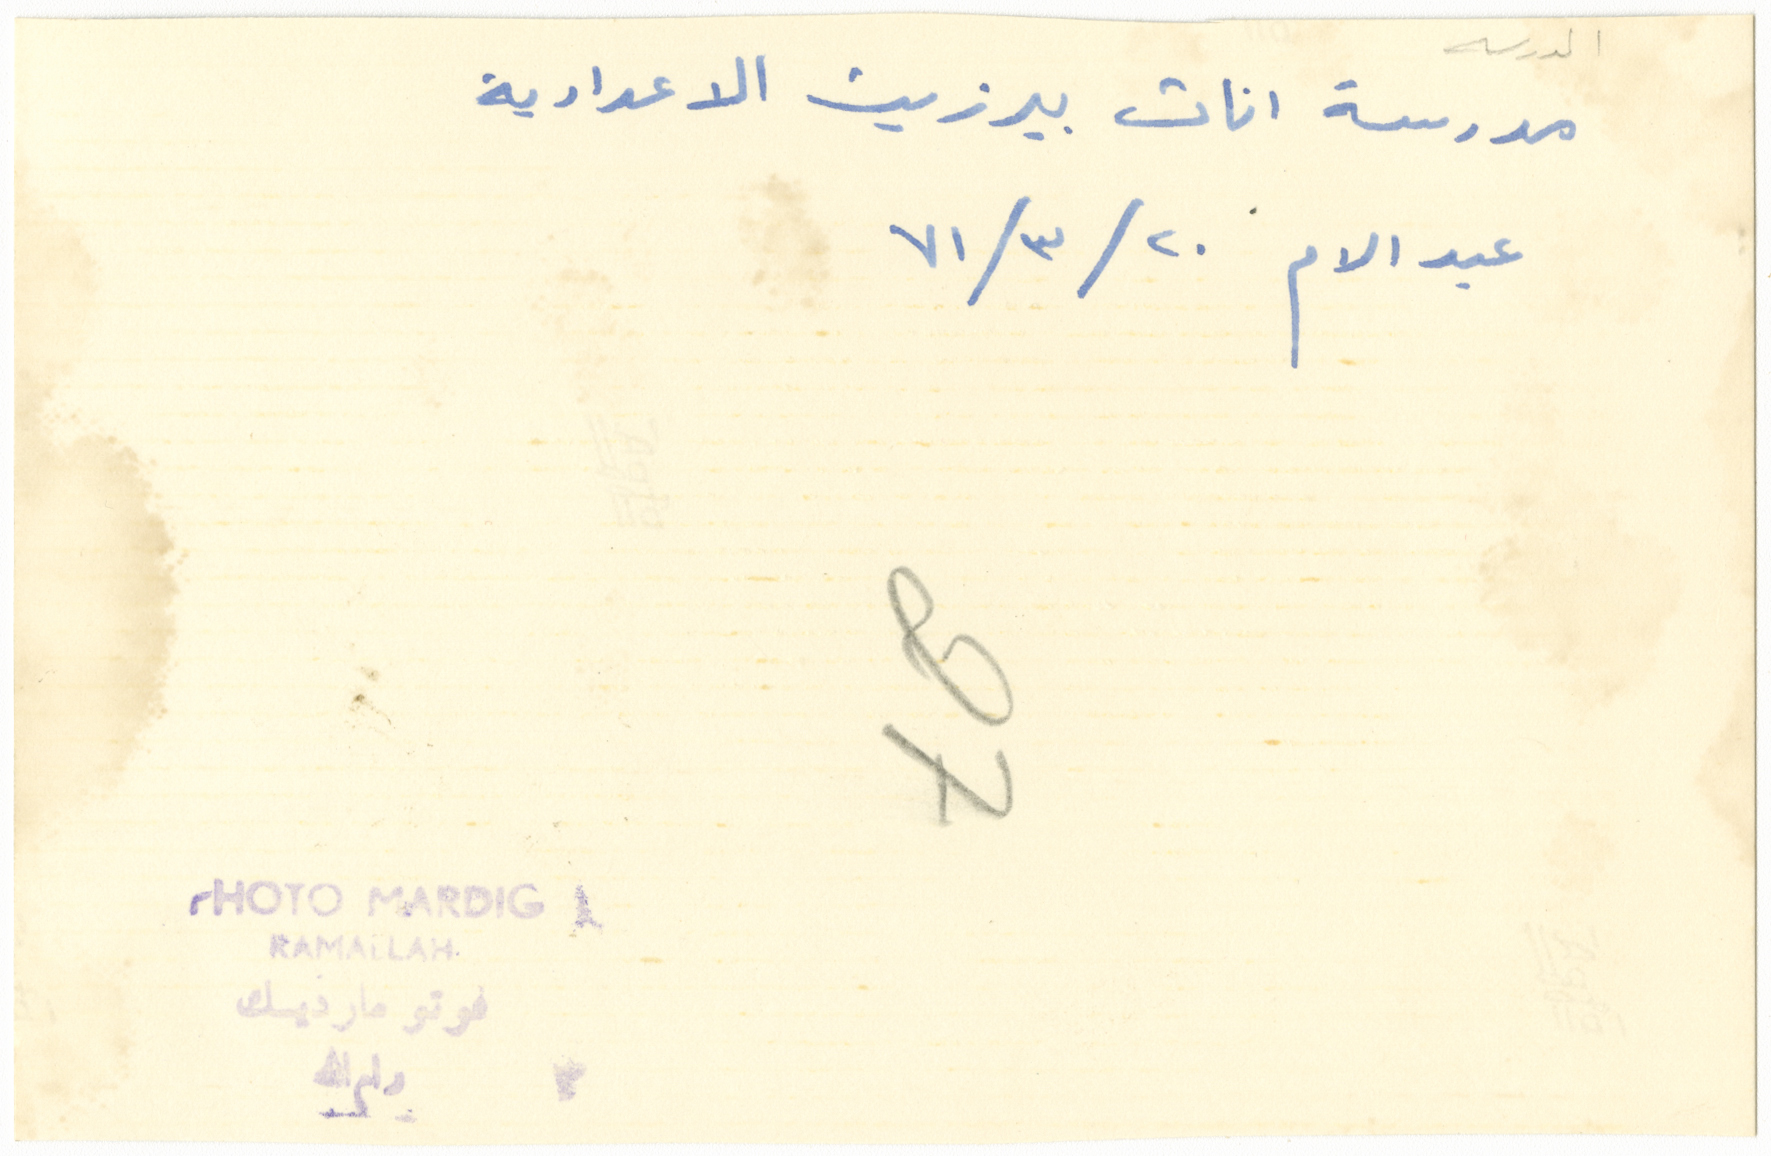 المدرسه
مدرسة اناث بيرزيت الاعدادية
عيد الام ٢٠/٣/٧١
PHOTO MARDIG
RAMALLAH.
فوتو مارديك
رام الله